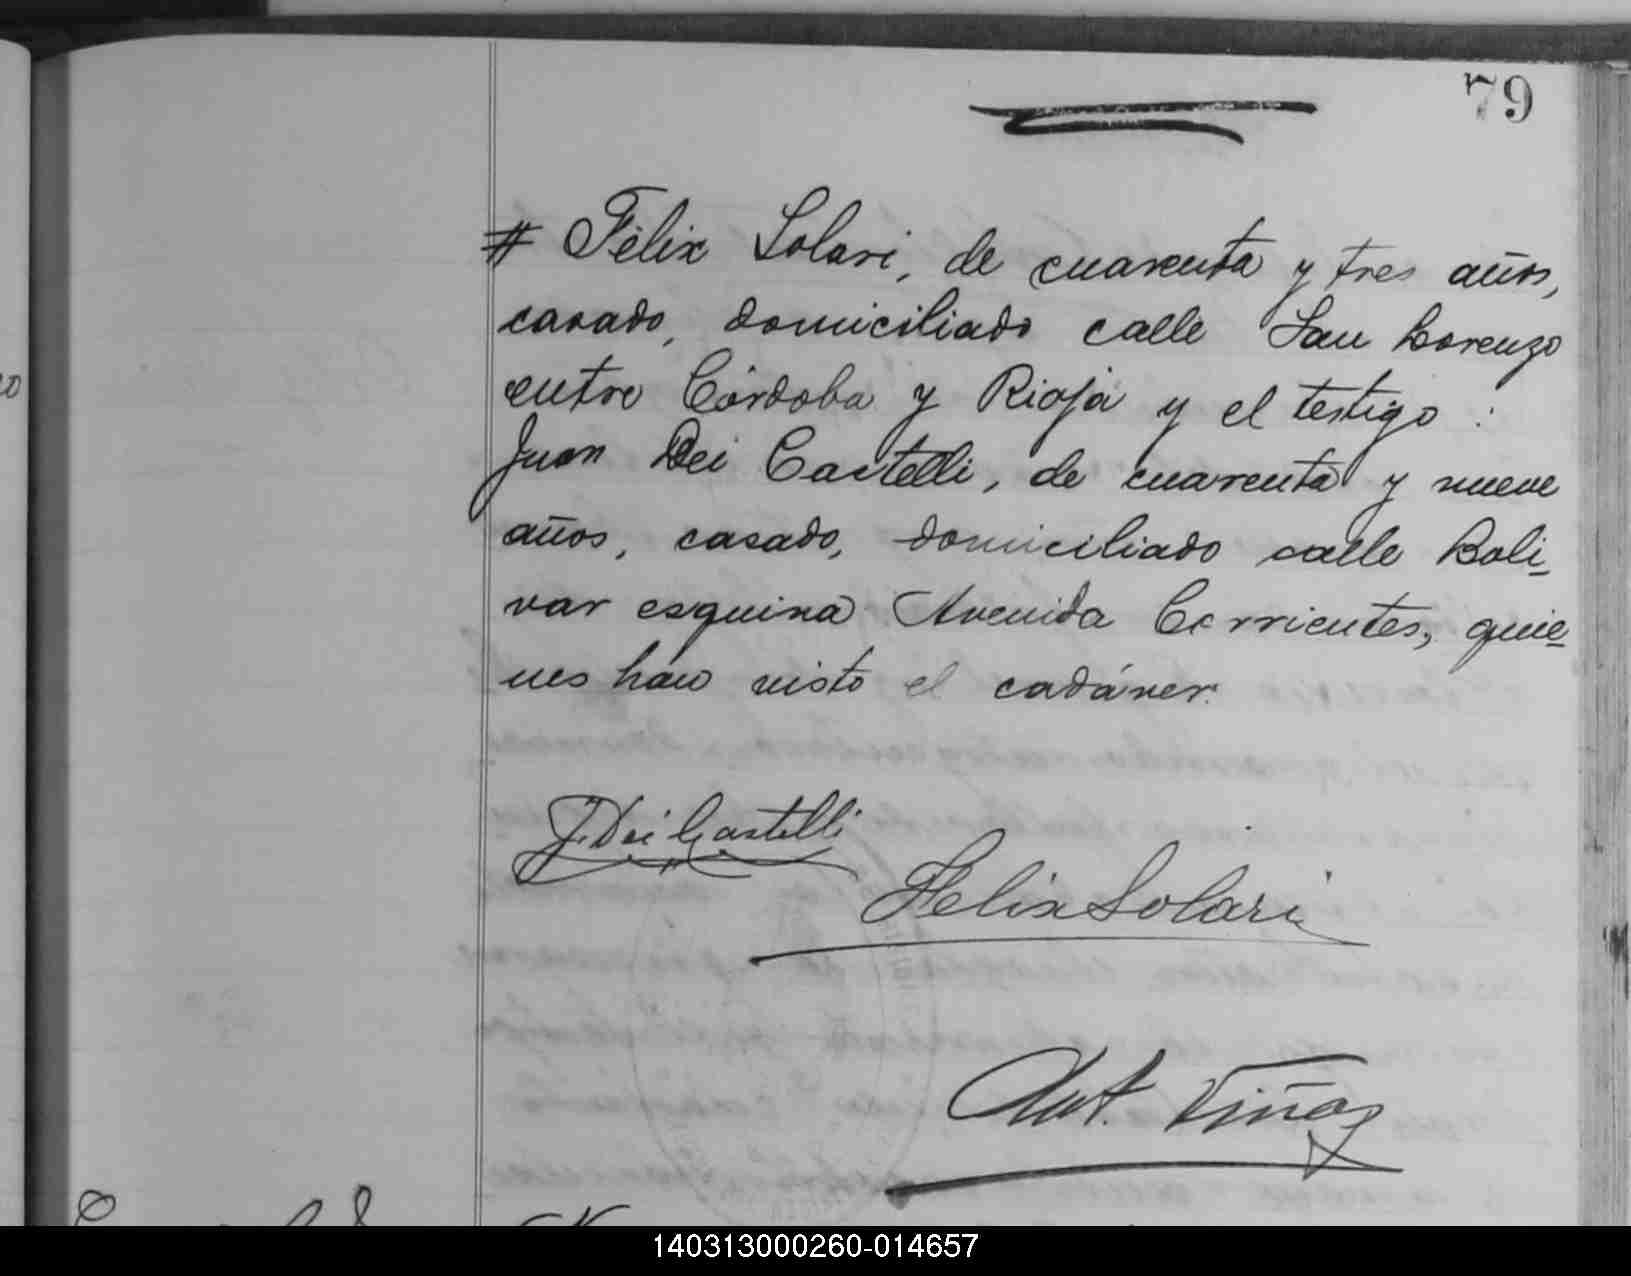 79
# Félix Solari, de cuarenta y tres años,
casado, domiciliado calle San Lorenzo
entre Córdoba y Rioja y el testigo:
Juan Dei Castelli, de cuarenta y nueve
años, casado, domiciliado calle Boli-
var esquina Avenida Corrientes, quie-
nes han visto el cadáver.
J. Dei Castelli
Felix Solari
Ant. Viñas
140313000260-014657